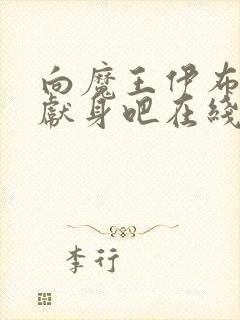 向魔王伊布
献身吧在线
李行